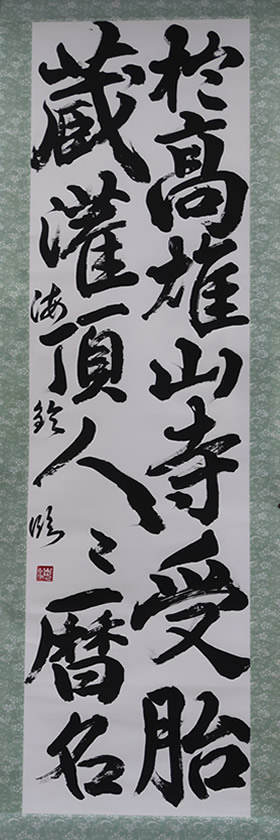 於高雄山寺受胎
蔵灌頂人々暦名
海鈴臨